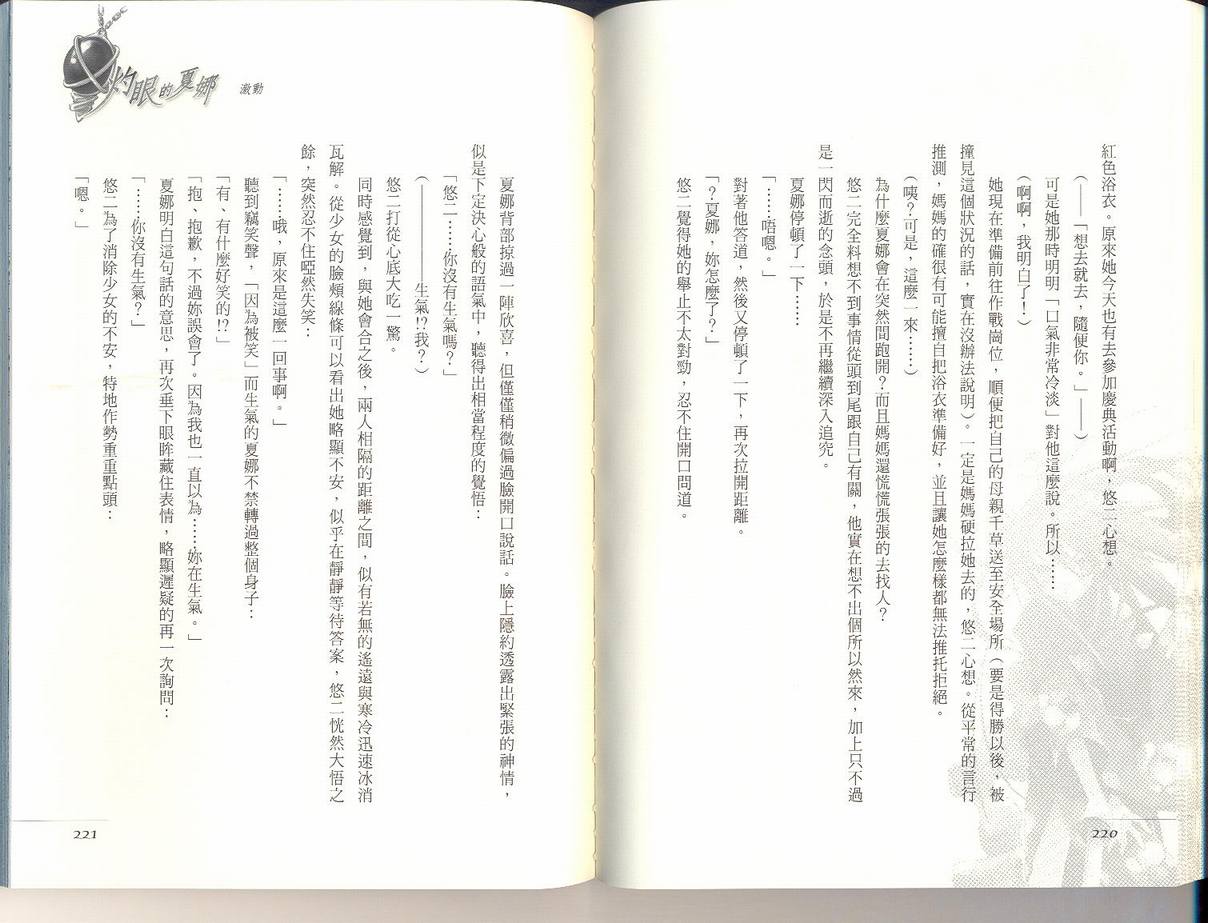 紅色浴衣。原來她今天也有去參加慶典活動啊，悠二心想。
（——「想去就去，隨便你。」——）
可是她那時明明「口氣非常冷淡」對他這麼說。所以……
（啊啊，我明白了！）
她現在準備前往作戰崗位，順便把自己的母親千草送至安全場所（要是得勝以後，被
撞見這個狀況的話，實在沒辦法說明）。一定是媽媽硬拉她去的，悠二心想。從平常的言行
推測，媽媽的確很有可能擅自把浴衣準備好，並且讓她怎麼樣都無法推托拒絕。
（咦？可是，這麼一來……）
為什麼夏娜會在突然間跑開？而且媽媽還慌慌張張的去找人？
悠二完全料想不到事情從頭到尾跟自己有關，他實在想不出個所以然來，加上只不過
是一閃而逝的念頭，於是不再繼續深入追究。
夏娜停頓了一下……
「……唔嗯。」
對著他答道，然後又停頓了一下，再次拉開距離。
「？夏娜，妳怎麼了？」
悠二覺得她的舉止不太對勁，忍不住開口問道。
220
灼眼的夏娜
激動
夏娜背部掠過一陣欣喜，但僅僅稍微偏過臉開口說話。臉上隱約透露出緊張的神情，
似是下定決心般的語氣中，聽得出相當程度的覺悟：
「悠二……你沒有生氣嗎？」
（————生氣!?我？）
悠二打從心底大吃一驚。
同時感覺到，與她會合之後，兩人相隔的距離之間，似有若無的遙遠與寒冷迅速冰消
瓦解。從少女的臉頰線條可以看出她略顯不安，似乎在靜靜等待答案，悠二恍然大悟之
餘，突然忍不住啞然失笑：
「……哦，原來是這麼一回事啊。」
聽到竊笑聲，「因為被笑」而生氣的夏娜不禁轉過整個身子：
「有、有什麼好笑的!?」
「抱、抱歉，不過妳誤會了。因為我也一直以為……妳在生氣。」
夏娜明白這句話的意思，再次垂下眼眸藏住表情，略顯遲疑的再一次詢問：
「……你沒有生氣？」
悠二為了消除少女的不安，特地作勢重重點頭：
「嗯。」
221